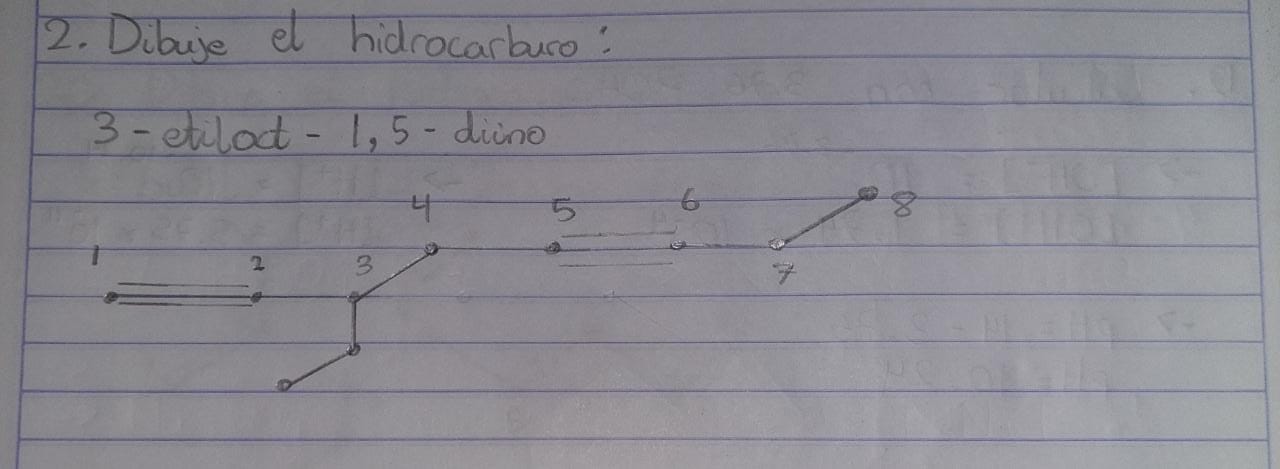 2. Dibuje el hidrocarburo:
3-etiloct-1,5-diino
4 5 6 8
1 2 3 7